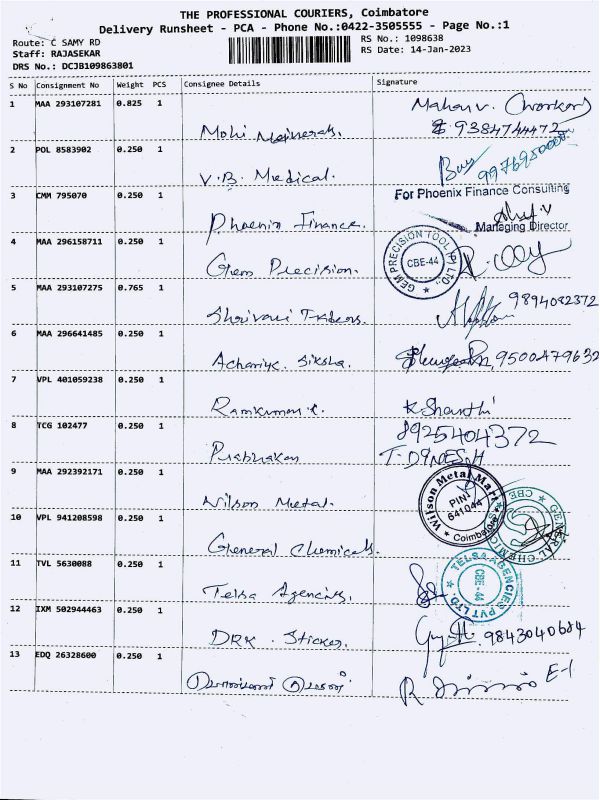 THE PROFESSIONAL COURIERS, Coimbatore
Delivery Runsheet - PCA - Phone No.:0422-3505555 - Page No.:1
Route: C SAMY RD
Staff: RAJASEKAR
DRS No.: DCJB109863801
RS No.: 1098638
RS Date: 14-Jan-2023
S No Consignment No Weight PCS Consignee Details Signature
1 MAA 293107281 0.825 1
Mohi 9384744472
2 POL 8583902 0.250 1
V.B. Medical.
3 CMM 795070 0.250 1
For Phoenix Finance Consulting
Phoenix Finance.
Managing Director
4 MAA 296158711 0.250 1
Gem Precision.
GEM PRECISION TOOL (P) LTD.,
CBE-44
5 MAA 293107275 0.765 1
Shrivari Traders. 9894082372
6 MAA 296641485 0.250 1
Achariya. Siksha. 9500479632
7 VPL 401059238 0.250 1
Ramkumar. K Shanthi
8 TCG 102477 0.250 1
8925404372
Prabhakar T. DINESH
9 MAA 292392171 0.250 1
Wilson Metal.
Wilson Metal Mart
PIN
641044
Coimbatore
10 VPL 941208598 0.250 1
General Chemicals.
GENERAL CHEMICALS
CBE
11 TVL 5630088 0.250 1
Telsa Agencies.
TELSA AGENCIES PVT LTD.
CBE-44
12 IXM 502944463 0.250 1
DRK. Sticker. 9843040684
13 EDQ 26328600 0.250 1
E-1